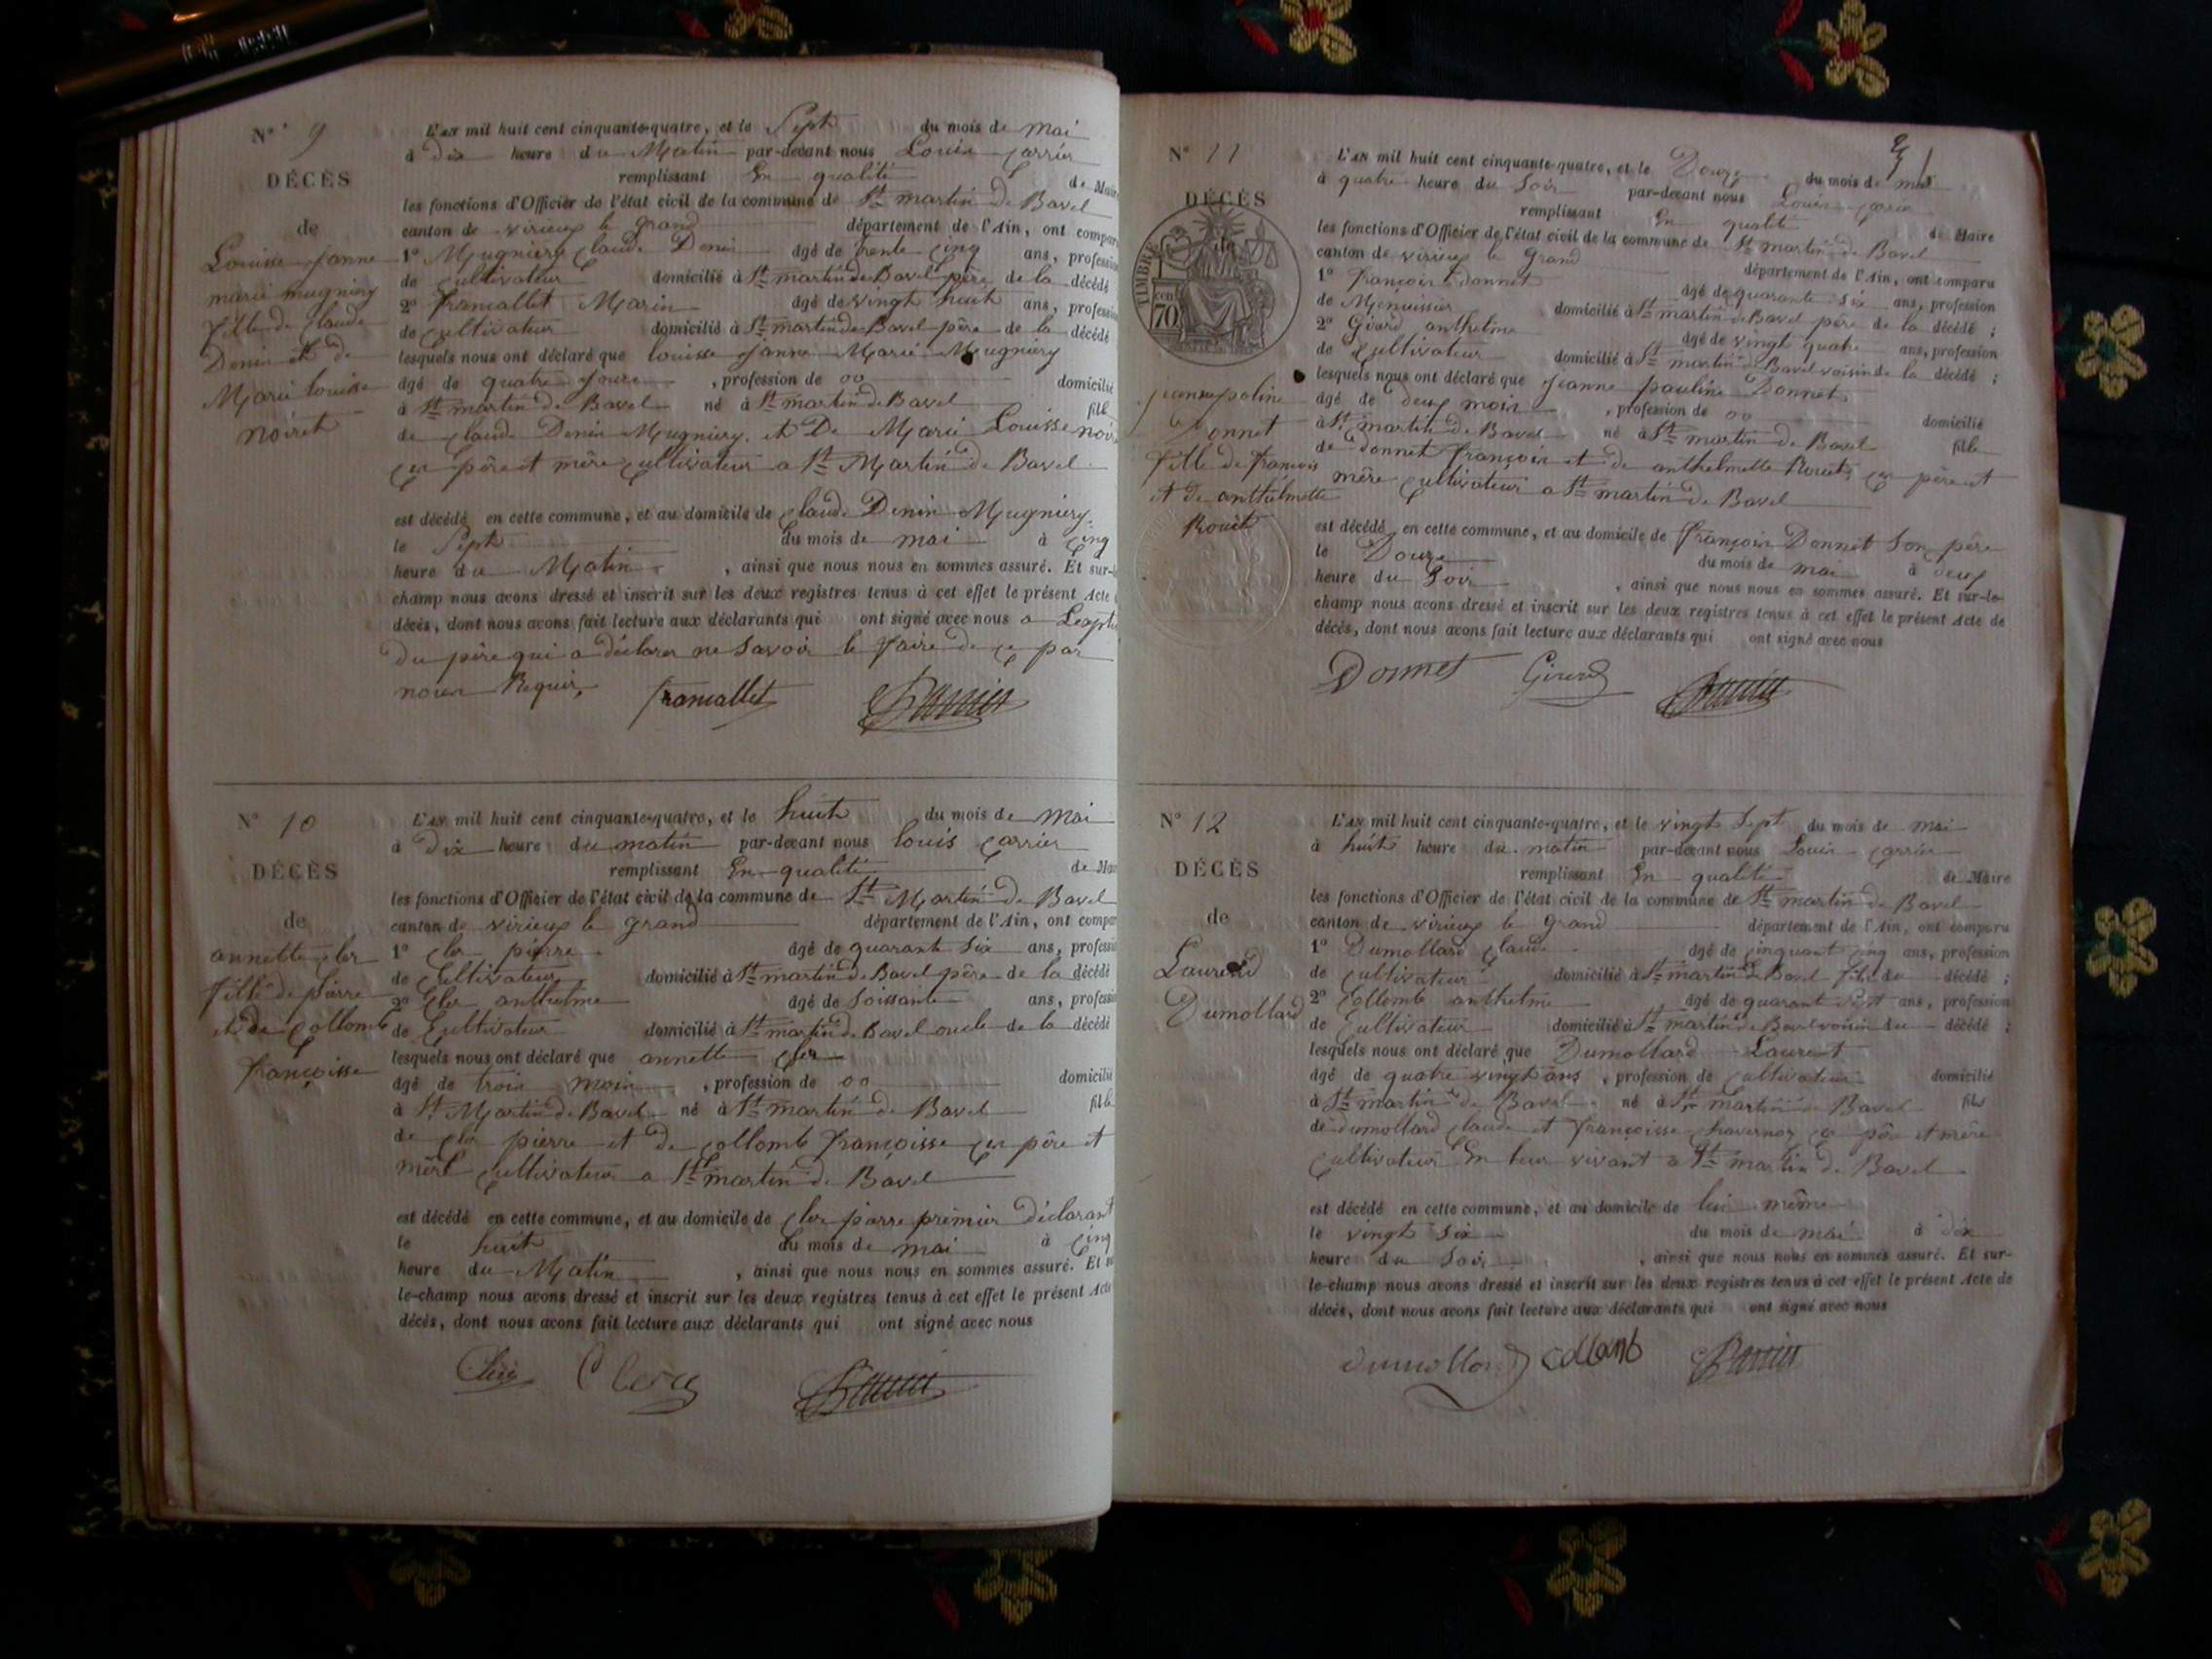 N° 9
DÉCÈS
de
Louisse janne
marie mugniery
fille de claude
Denis et de
Marie louisse
noiret
L'AN mil huit cent cinquante-quatre, et le Sept du mois de mai
à dix heure du Matin par-devant nous Louis carrier
remplissant En qualité de Maire
les fonctions d'Officier de l'état civil de la commune de St martin de Bavel
canton de virieux le grand département de l'Ain, ont compar
1° Mugniery claude Denis âgé de trente cinq ans, profession
de cultivateur domicilié à St martin de Bavel père de la décédé
2° francallet Marin âgé de vingt huit ans, profession
de cultivateur domicilié à St martin de Bavel père de la décédé
lesquels nous ont déclaré que louisse janne Marie Mugniery
âgé de quatre jours , profession de oo domicilié
à St martin de Bavel né à St martin de Bavel fille
de claude Denis Mugniery et De Marie Louisse noir
ces père et mère cultivateur a St Martin de Bavel
est décédé en cette commune, et au domicile de claude Denis Mugniery
le Sept du mois de mai à cinq
heure du Matin , ainsi que nous nous en sommes assuré. Et sur-le
champ nous avons dressé et inscrit sur les deux registres tenus à cet effet le présent Acte
décès, dont nous avons fait lecture aux déclarants qui ont signé avec nous a Lexpti
du père qui a déclarer ne Savoir le faire de ce par
nous Requis
francallet Carrier
N° 10
DÉCÈS
de
annette cler
fille de pierre
et de collomb
françoisse
L'AN mil huit cent cinquante-quatre, et le huit du mois de Mai
à dix heure du matin par-devant nous louis carrier
remplissant En qualité de Mai
les fonctions d'Officier de l'état civil de la commune de St Martin de Bavel
canton de virieux le grand département de l'Ain, ont compar
1° cler pierre âgé de quarant six ans, professi
de Cultivateur domicilié à St martin de Bavel père de la décédé
2° Cler anthelme âgé de soissante ans, professi
de Cultivateur domicilié à St martin de Bavel oncle de la décédé
lesquels nous ont déclaré que annette cler
âgé de trois mois , profession de oo domicilié
à St Martin de Bavel né à St martin de Bavel fille
de cler pierre et de collomb françoisse ces père et
mère cultivateur a St martin de Bavel
est décédé en cette commune, et au domicile de cler piarre premier déclarant
le huit du mois de mai à cinq
heure du Matin , ainsi que nous nous en sommes assuré. Et
le-champ nous avons dressé et inscrit sur les deux registres tenus à cet effet le présent Acte
décès, dont nous avons fait lecture aux déclarants qui ont signé avec nous
Clerc Carrier
N° 11
DÉCÈS
de
TIMBRE
cen
70
jeanne poline
Donnet
fille de francois
et de anthelmette
Rouet
L'AN mil huit cent cinquante-quatre, et le Douze du mois de mai
à quatre heure du Soir par-devant nous Louis carrier
remplissant En qualité de Maire
les fonctions d'Officier de l'état civil de la commune de St martin de Bavel
canton de virieux le grand département de l'Ain, ont comparu
1° francois donnet âgé de quarante six ans, profession
de Menuisier domicilié à St martin de Bavel père de la décédé ;
2° Girard anthelme âgé de vingt quatre ans, profession
de Cultivateur domicilié à St martin de Bavel voisin de la décédé ;
lesquels nous ont déclaré que jeanne pauline Donnet
âgé de deux mois , profession de oo domicilié
à St martin de Bavel né à St martin de Bavel fille
de donnet françois et de anthelmette Rouet ces père et
mère cultivateur a St martin de Bavel
est décédé en cette commune, et au domicile de françois Donnet Son père
le Douze du mois de mai à deux
heure du Soir , ainsi que nous nous en sommes assuré. Et sur-le-
champ nous avons dressé et inscrit sur les deux registres tenus à cet effet le présent Acte de
décès, dont nous avons fait lecture aux déclarants qui ont signé avec nous
Donnet Girard Carrier
N° 12
DÉCÈS
de
Laurend
Dumollard
L'AN mil huit cent cinquante-quatre, et le vingt Sept du mois de mai
à huit heure du matin par-devant nous Louis carrier
remplissant En qualité de Maire
les fonctions d'Officier de l'état civil de la commune de St martin de Bavel
canton de virieux le grand département de l'Ain, ont comparu
1° Dumollard claude âgé de cinquant cinq ans, profession
de cultivateur domicilié à St martin de Bavel fils du décédé ;
2° Collomb anthelme âgé de quarant Sept ans, profession
de Cultivateur domicilié à St martin de Bavel voisin du décédé ;
lesquels nous ont déclaré que Dumollard Laurent
âgé de quatre vingt ans , profession de cultivateur domicilié
à St martin de Bavel né à St martin de Bavel fils
de dumollard claude et françoisse chavernoz ces père et mère
cultivateur En leur vivant a St martin de Bavel
est décédé en cette commune, et au domicile de lui même
le vingt six du mois de mai à dix
heure du Soir , ainsi que nous nous en sommes assuré. Et sur-
le-champ nous avons dressé et inscrit sur les deux registres tenus à cet effet le présent Acte de
décès, dont nous avons fait lecture aux déclarants qui ont signé avec nous
dumollard collomb Carrier